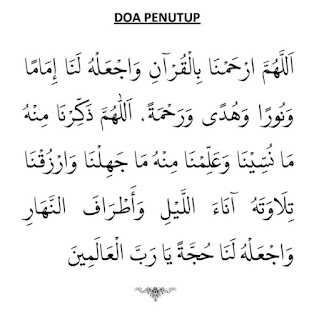 DOA PENUTUP
اَللَّهُمَّ ارْحَمْنَا بِالْقُرْآنِ وَاجْعَلْهُ لَنَا إِمَامًا
وَنُورًا وَهُدًى وَرَحْمَةً. اَللَّهُمَّ ذَكِّرْنَا مِنْهُ
مَا نُسِّيْنَا وَعَلِّمْنَا مِنْهُ مَا جَهِلْنَا وَارْزُقْنَا
تِلَاوَتَهُ آنَاءَ اللَّيْلِ وَأَطْرَافَ النَّهَارِ
وَاجْعَلْهُ لَنَا حُجَّةً يَا رَبَّ الْعَالَمِينَ